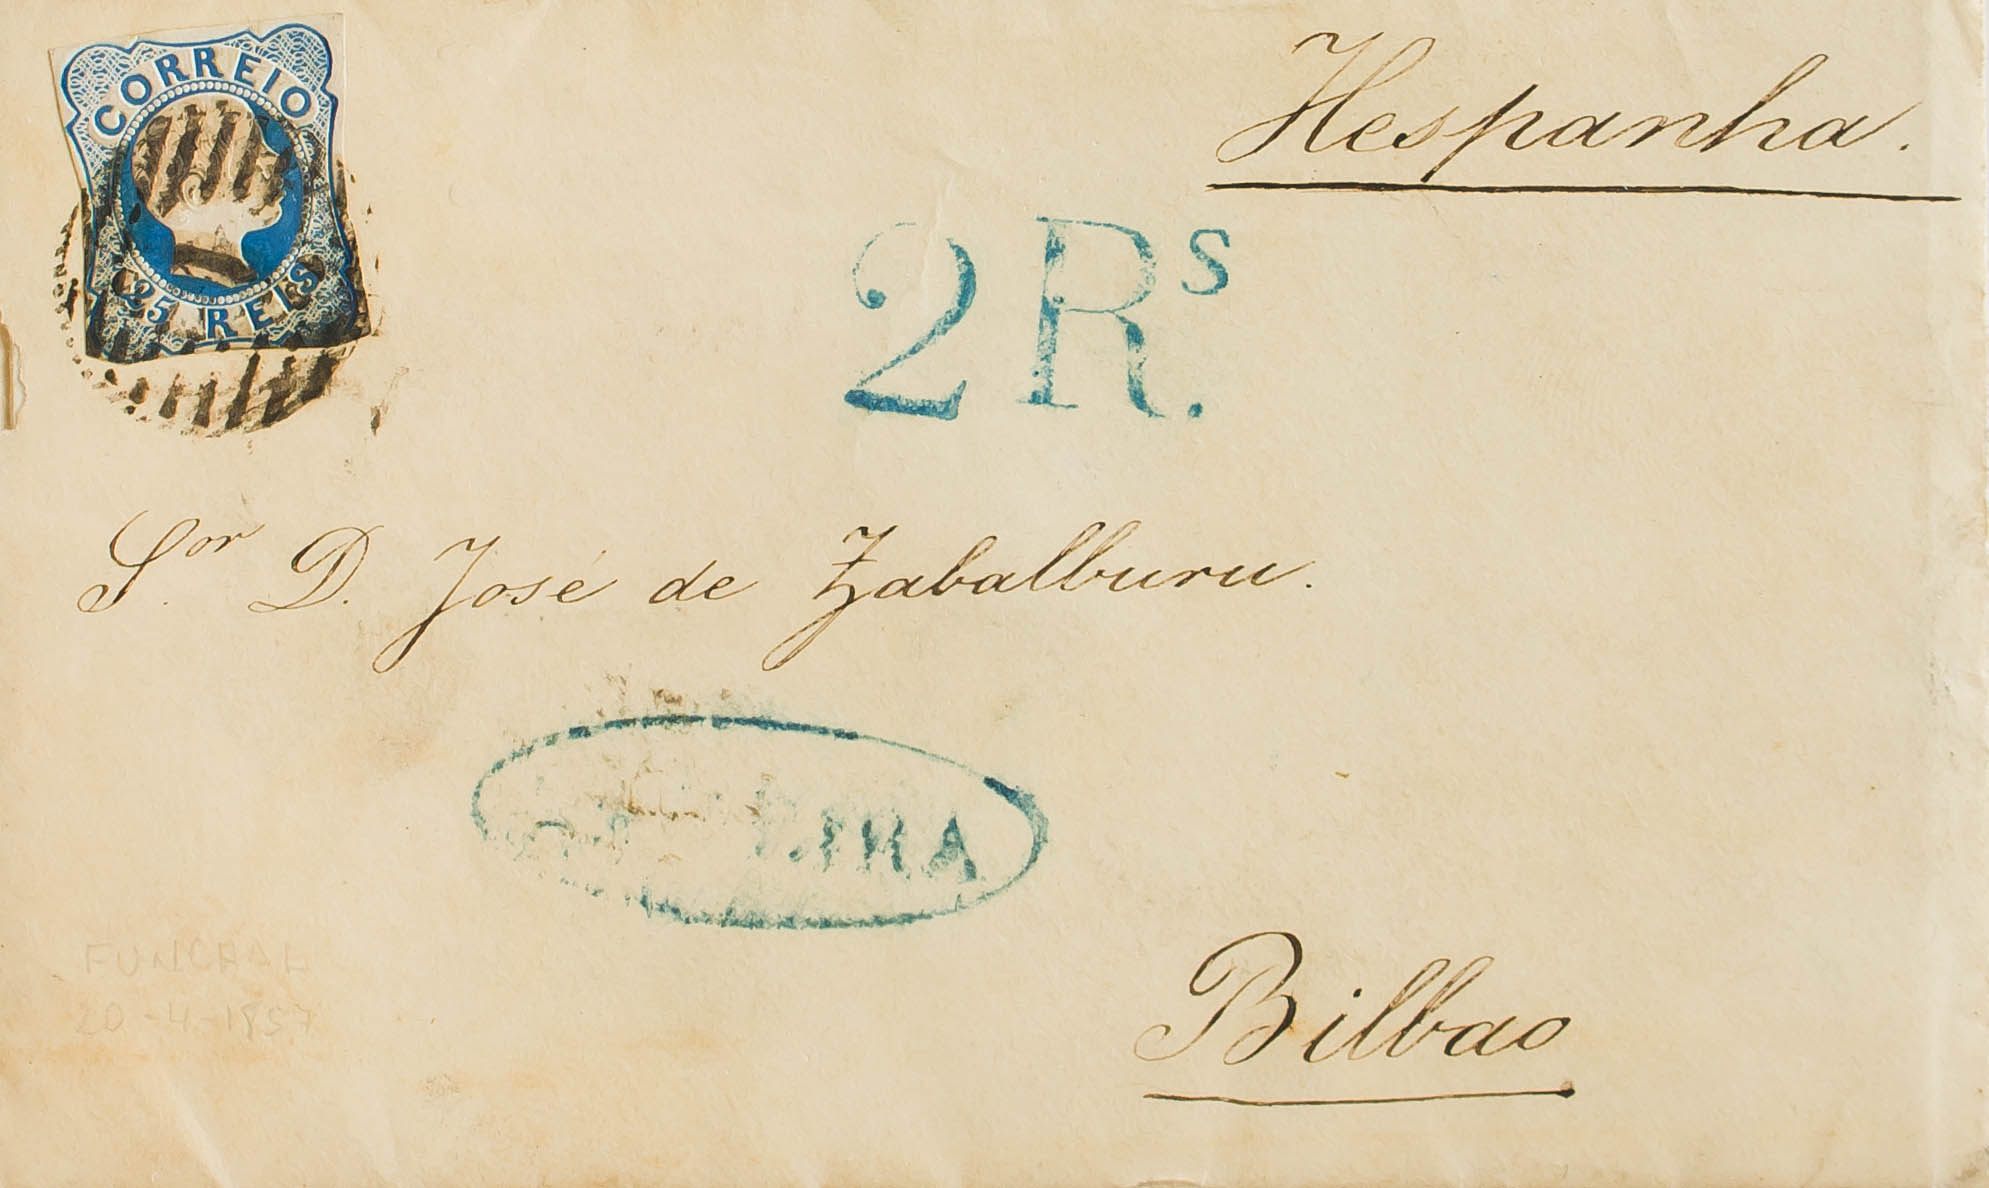 CORREIO
25 REIS
Hespanha.
2 Rs.
Sor. D. José de Zabalburu.
Bilbao
FUNCHAL
20-4-1857